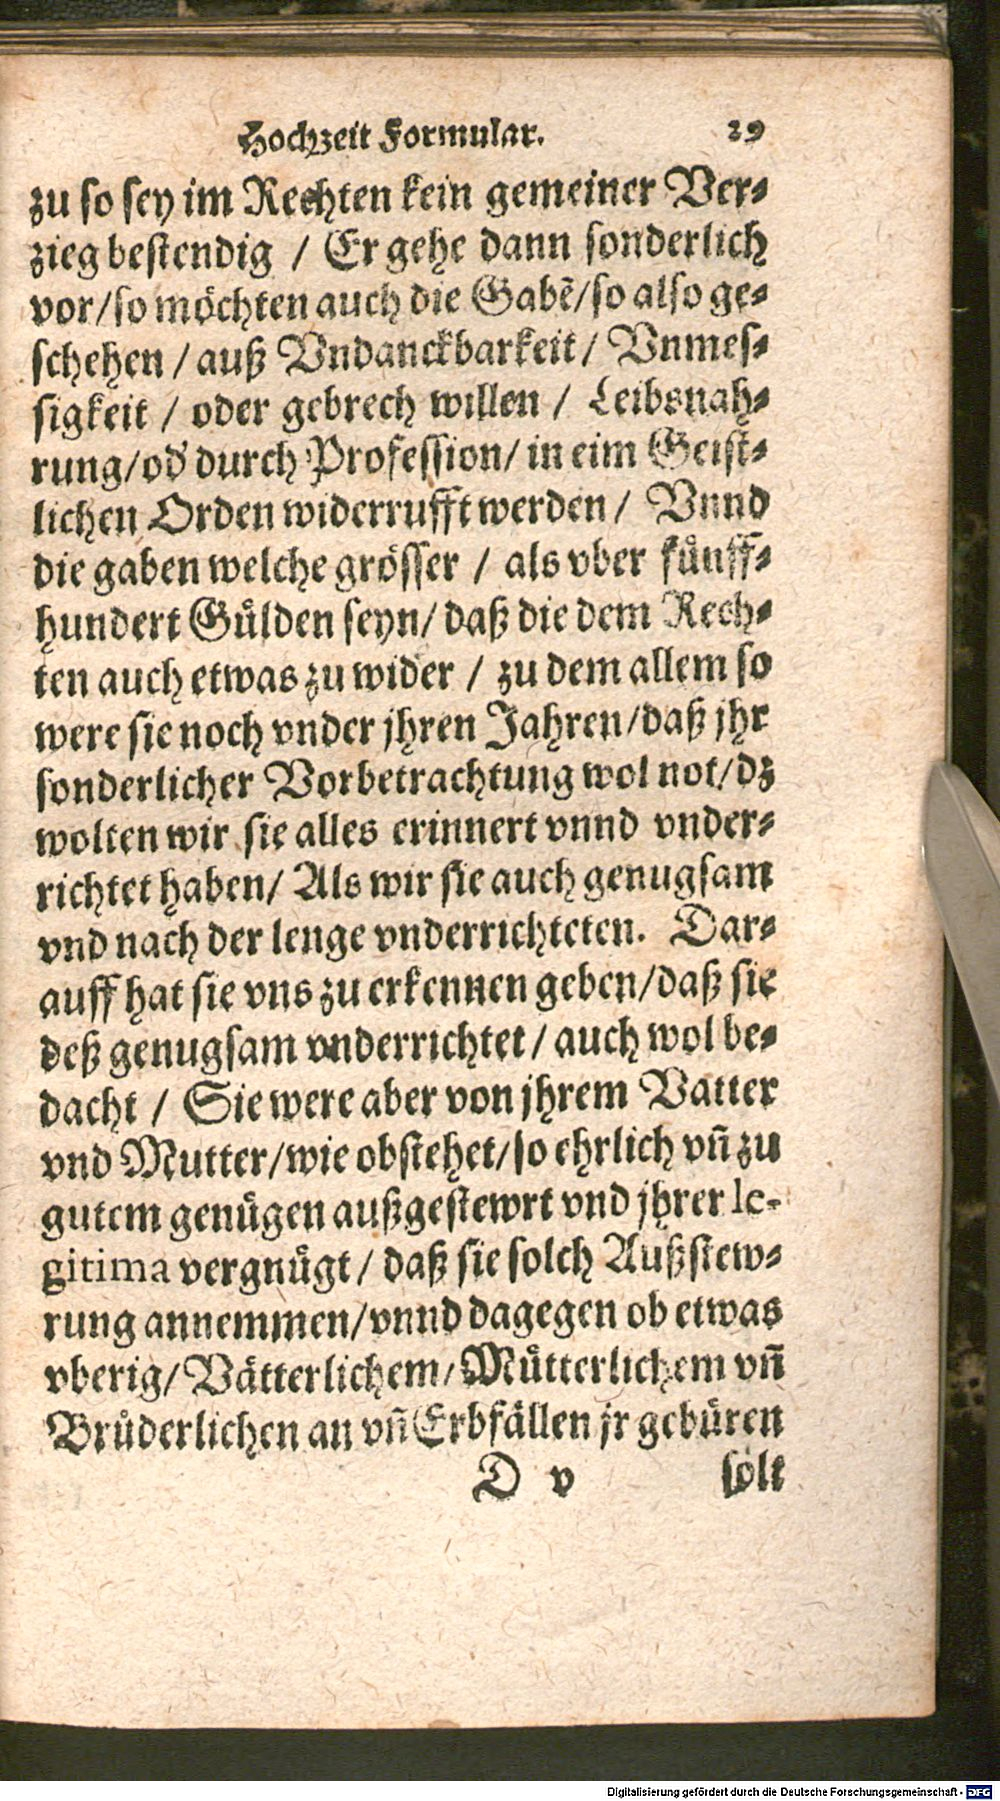 Hochzeit Formular. 29
zu so sey im Rechten kein gemeiner Ver-
zieg bestendig / Er gehe dann sonderlich
vor/so möchten auch die Gabẽ/so also ge-
schehen / auß Vndanckbarkeit/ Vnmes-
sigkeit / oder gebrech willen / Leibsnah-
rung/od' durch Profession/ in eim Geist-
lichen Orden widerrufft werden/ Vnnd
die gaben welche grösser / als vber fünff-
hundert Gülden seyn/ daß die dem Rech-
ten auch etwas zu wider / zu dem allem so
were sie noch vnder jhren Jahren/daß jhr
sonderlicher Vorbetrachtung wol not/dz
wolten wir sie alles erinnert vnnd vnder-
richtet haben/ Als wir sie auch genugsam
vnd nach der lenge vnderrichteten. Dar-
auff hat sie vns zu erkennen geben/daß sie
deß genugsam vnderrichtet/ auch wol be-
dacht / Sie were aber von jhrem Vatter
vnd Mutter/wie obstehet/so ehrlich vñ zu
gutem genügen außgestewrt vnd jhrer le-
gitima vergnügt/ daß sie solch Außstew-
rung annemmen/vnnd dagegen ob etwas
vberig/ Vätterlichem/Mütterlichem vñ
Brůderlichen an vñ Erbfällen jr gebüren
D v solt
Digitalisierung gefördert durch die Deutsche Forschungsgemeinschaft - DFG